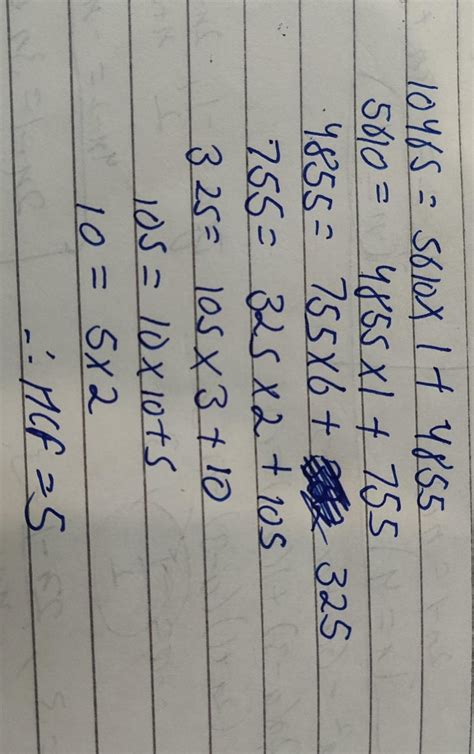 10465 = 5610 x 1 + 4855
5610 = 4855 x 1 + 755
4855 = 755 x 6 + 325
755 = 325 x 2 + 105
325 = 105 x 3 + 10
105 = 10 x 10 + 5
10 = 5 x 2
∴ HCF = 5